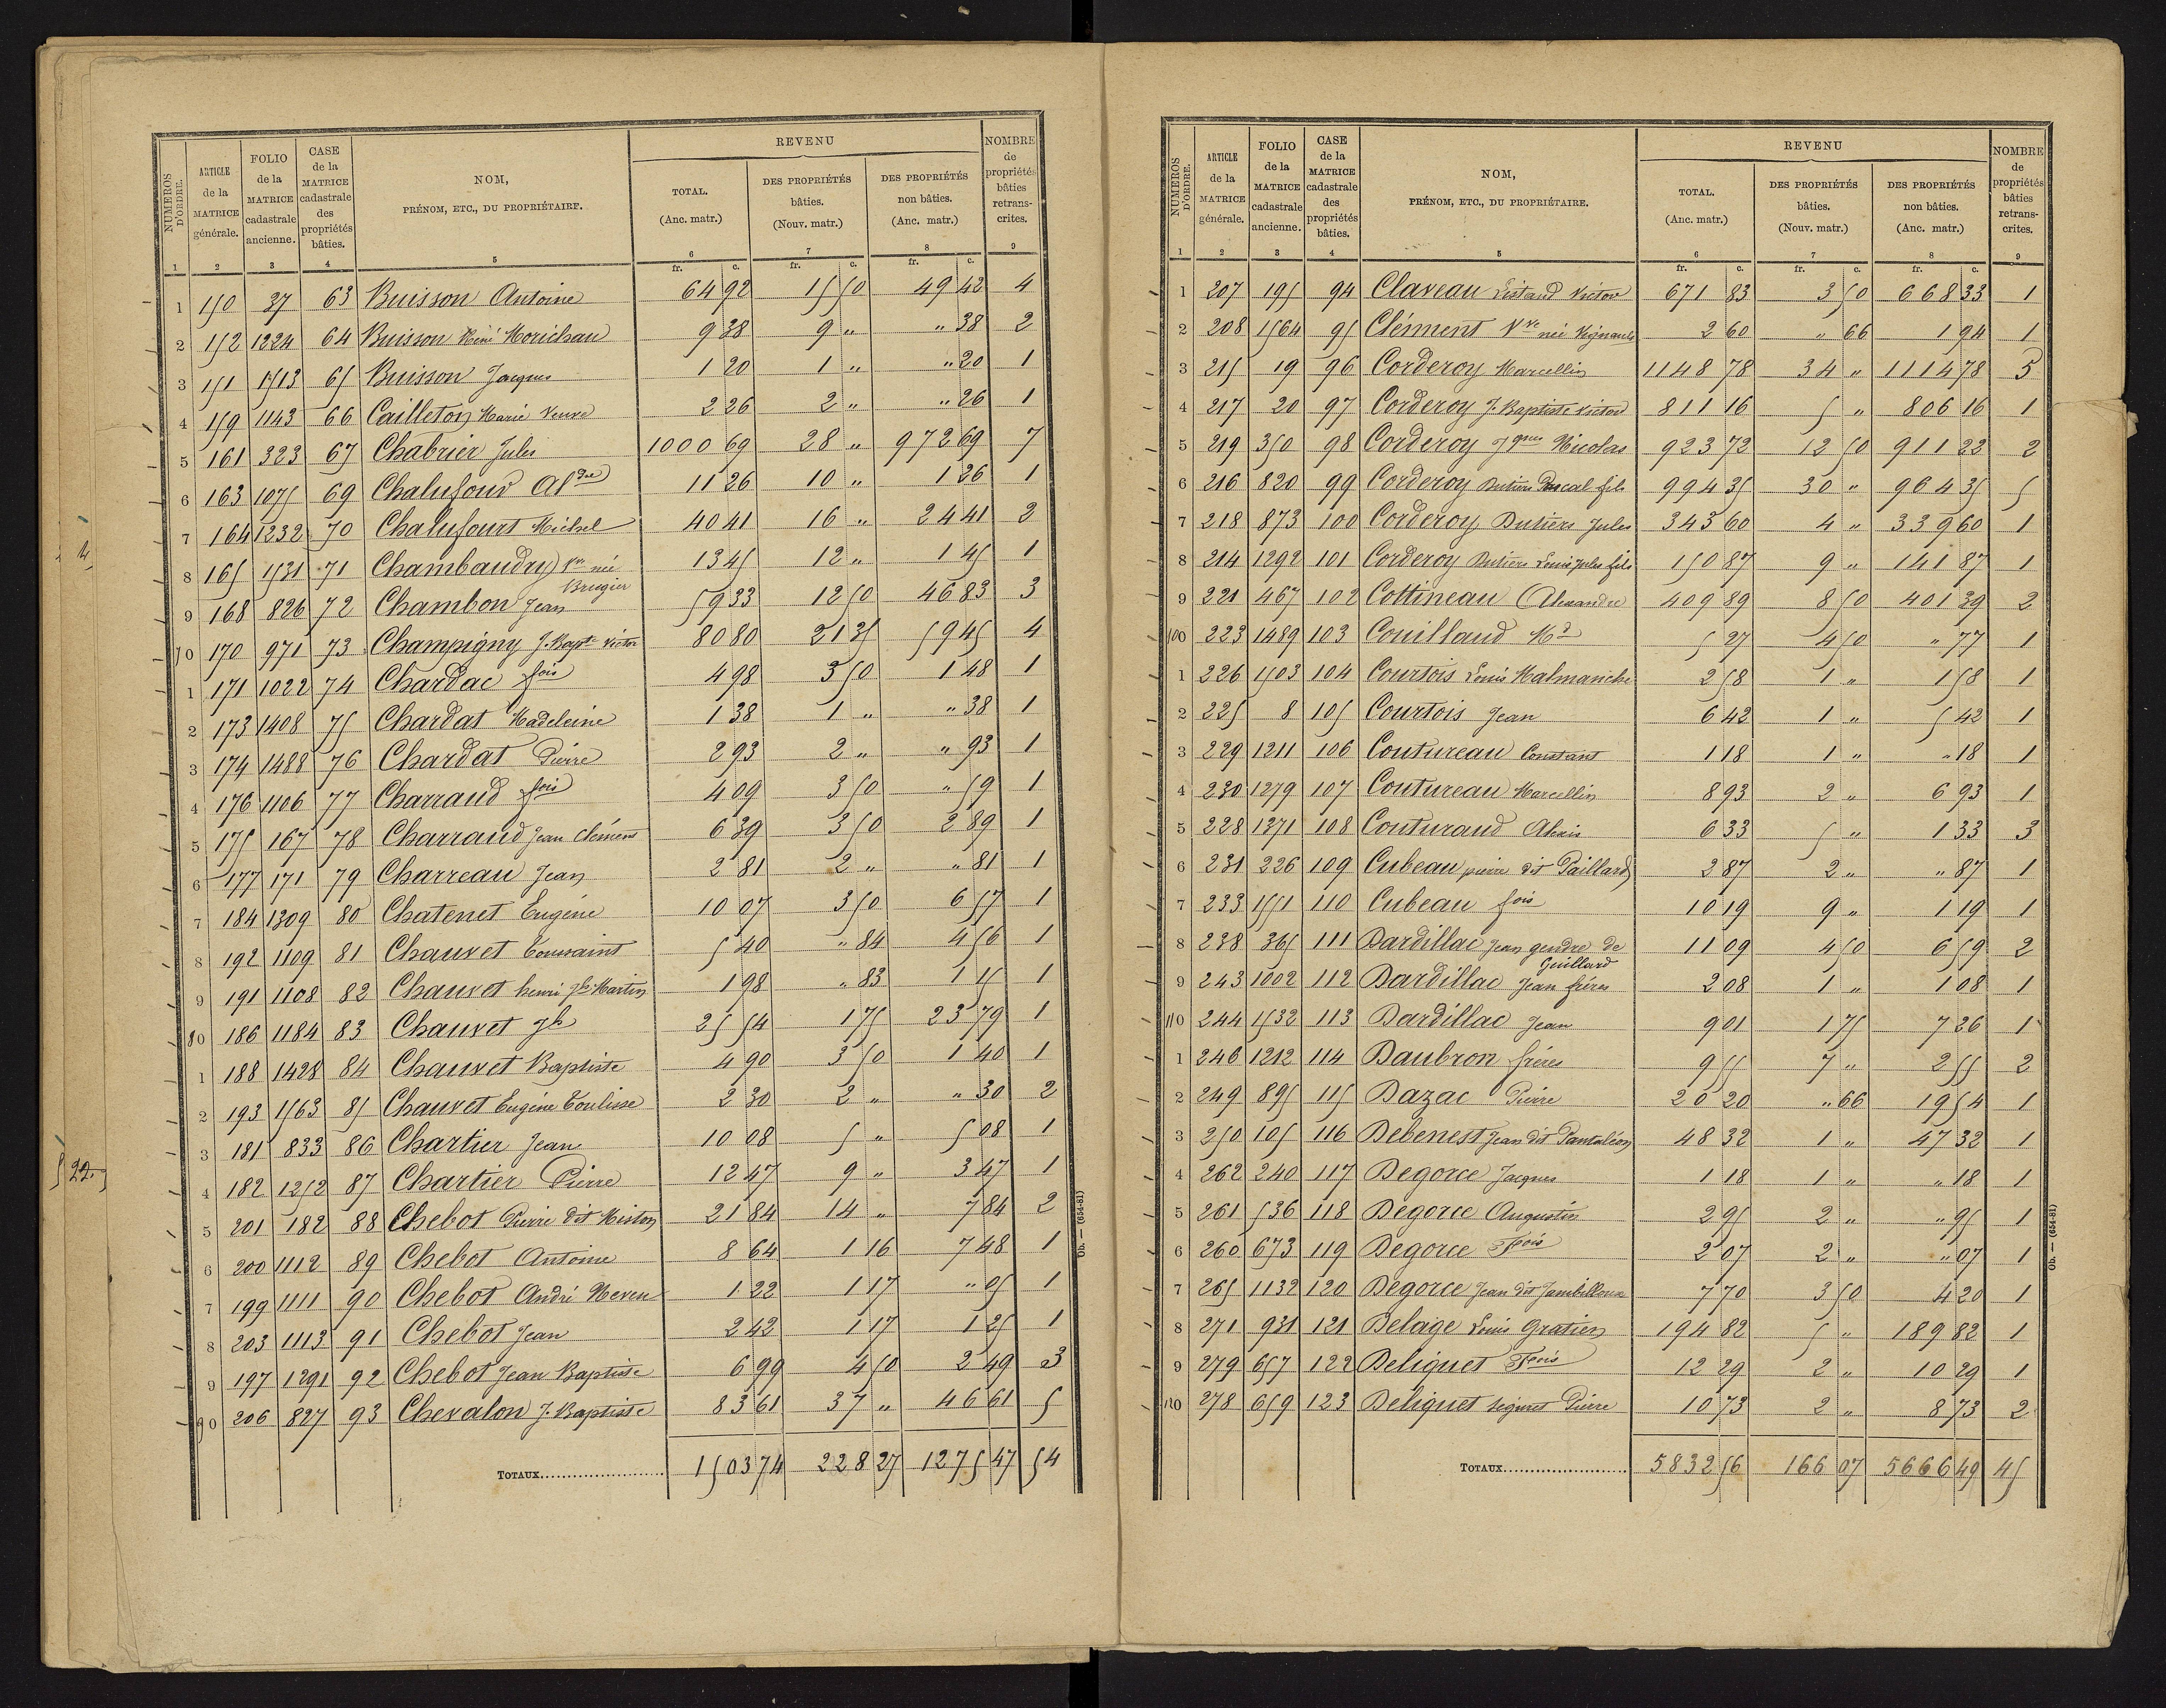 NUMÉROS D'ORDRE.
ARTICLE de la MATRICE générale.
FOLIO de la MATRICE cadastrale ancienne.
CASE de la MATRICE cadastrale des propriétés bâties.
NOM, PRÉNOM, ETC., DU PROPRIÉTAIRE.
REVENU
TOTAL. (Anc. matr.)
DES PROPRIÉTÉS bâties. (Nouv. matr.)
DES PROPRIÉTÉS non bâties. (Anc. matr.)
NOMBRE de propriétés bâties retranscrites.
1 2 3 4 5 6 7 8 9
fr. c. fr. c. fr. c.
1 150 37 63 Buisson Antoine 64 92 15 50 49 42 4
2 152 1224 64 Buisson Réné Morichau 9 38 9 " " 38 2
3 151 1513 65 Buisson Jacques 1 20 1 " " 20 1
4 159 1143 66 Cailleton Marie veuve 2 26 2 " " 26 1
5 161 323 67 Chabrier Jules 1000 69 28 " 972 69 7
6 163 1075 69 Chalufour Aldre 11 26 10 " 1 26 1
7 164 1232 70 Chalufours Michel 40 41 16 " 24 41 2
8 165 1531 71 Chambaudry Vve née 13 45 12 " 1 45 1
Brugier
9 168 826 72 Chambon Jean 59 33 12 50 46 83 3
70 170 971 73 Champigny J. Bapte Victor 80 80 21 35 59 45 4
1 171 1022 74 Chardac fois 4 98 3 50 1 48 1
2 173 1408 75 Chardat Madeleine 1 38 1 " " 38 1
3 174 1488 76 Chardat Pierre 2 93 2 " " 93 1
4 176 1106 77 Charraud fois 4 09 3 50 " 59 1
5 175 167 78 Charraud Jean Clément 6 39 3 50 2 89 1
6 177 171 79 Charreau Jean 2 81 2 " " 81 1
7 184 1309 80 Chatenet Eugène 10 07 3 50 6 57 1
8 192 1109 81 Chauvet Toussaint 5 40 " 84 4 56 1
9 191 1108 82 Chauvet henri Jh Martin 1 98 " 83 1 15 1
80 186 1184 83 Chauvet Jh 25 54 1 75 23 79 1
1 188 1428 84 Chauvet Baptiste 4 90 3 50 1 40 1
2 193 1563 85 Chauvet Eugène Coulisse 2 30 2 " " 30 2
3 181 833 86 Chartier Jean 10 08 5 " 5 08 1
4 182 1252 87 Chartier Pierre 12 47 9 " 3 47 1
5 201 182 88 Chebot Pierre dit Miston 21 84 14 " 7 84 2
6 200 1112 89 Chebot Antoine 8 64 1 16 7 48 1
7 199 1111 90 Chebot André Neveu 1 22 1 17 " 05 1
8 203 1113 91 Chebot Jean 2 42 1 17 1 25 1
9 197 1291 92 Chebot Jean Baptiste 6 99 4 50 2 49 3
90 206 827 93 Chevalon J. Baptiste 83 61 37 " 46 61 5
TOTAUX 1503 74 228 27 1275 47 54
Ob. — (654-81)
NUMÉROS D'ORDRE.
ARTICLE de la MATRICE générale.
FOLIO de la MATRICE cadastrale ancienne.
CASE de la MATRICE cadastrale des propriétés bâties.
NOM, PRÉNOM, ETC., DU PROPRIÉTAIRE.
REVENU
TOTAL. (Anc. matr.)
DES PROPRIÉTÉS bâties. (Nouv. matr.)
DES PROPRIÉTÉS non bâties. (Anc. matr.)
NOMBRE de propriétés bâties retranscrites.
1 2 3 4 5 6 7 8 9
fr. c. fr. c. fr. c.
1 207 195 94 Claveau Victor 671 83 3 50 668 33 1
2 208 1564 95 Clément Vve née Vignaud 2 60 " 66 1 94 1
3 215 19 96 Corderoy Marcellin 1148 78 34 " 1114 78 5
4 217 20 97 Corderoy J. Baptiste Victor 811 16 5 " 806 16 1
5 219 350 98 Corderoy Jques Nicolas 923 72 12 50 911 22 2
6 216 820 99 Corderoy Dutiers Pascal fils 994 35 30 " 964 35 5
7 218 873 100 Corderoy Dutiers Jules 343 60 4 " 339 60 1
8 214 1292 101 Corderoy Dutiers Louis Jules fils 150 87 9 " 141 87 1
9 221 467 102 Cottineau Alexandre 409 89 8 50 401 39 2
100 223 1489 103 Couillaud Md 5 27 4 50 " 77 1
1 226 1503 104 Courtois Louis Malmanche 2 58 1 " 1 58 1
2 225 8 105 Courtois Jean 6 42 1 " 5 42 1
3 229 1211 106 Coutureau Constant 1 18 1 " " 18 1
4 230 1279 107 Coutureau Marcellin 8 93 2 " 6 93 1
5 228 1371 108 Couturaud Alexis 6 33 5 " 1 33 3
6 231 226 109 Cubeau pierre dit Paillard 2 87 2 " " 87 1
7 233 1551 110 Cubeau fois 10 19 9 " 1 19 1
8 238 365 111 Dardillac Jean gendre de 11 09 4 50 6 59 2
Guillard
9 243 1002 112 Dardillac Jean frères 2 08 1 " 1 08 1
110 244 1532 113 Dardillac Jean 9 01 1 75 7 26 1
1 246 1212 114 Daubron frères 9 55 7 " 2 55 2
2 249 895 115 Dazac Pierre 20 20 " 66 19 54 1
3 250 105 116 Debenest Jean dit Pantaléon 48 32 1 " 47 32 1
4 262 240 117 Degorce Jacques 1 18 1 " " 18 1
5 261 536 118 Degorce Augustin 2 95 2 " " 95 1
6 260 673 119 Degorce Fois 2 07 2 " " 07 1
7 265 1132 120 Degorce Jean dit Jambilloux 7 70 3 50 4 20 1
8 271 931 121 Delage Louis Gratien 194 82 5 " 189 82 1
9 279 657 122 Deliquet Fois 12 29 2 " 10 29 1
120 278 659 123 Deliquet Pierre 10 73 2 " 8 73 2
TOTAUX 5832 56 166 07 5666 49 45
Ob. — (654-81)